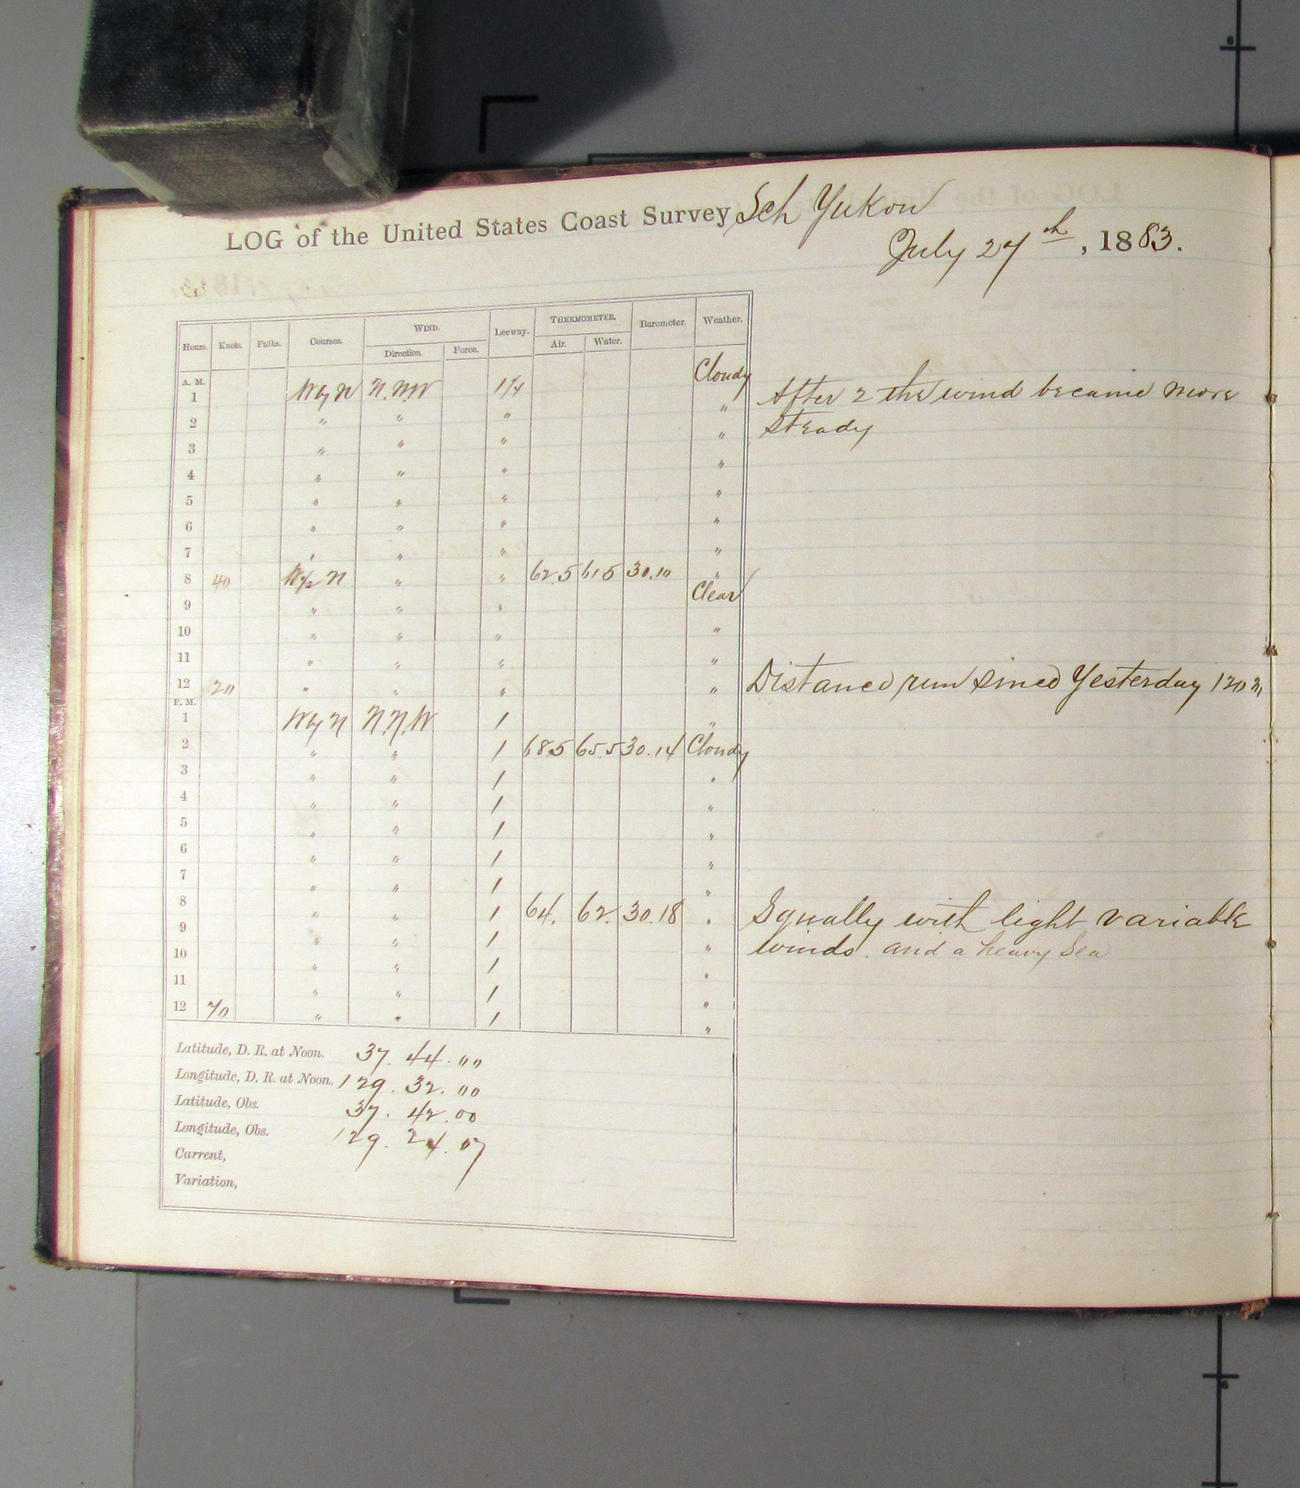 LOG of the United States Coast Survey Sch Yukon
July 27th, 1883.
Hours. Knots. Faths. Courses. WIND. Leeway. THERMOMETER. Barometer. Weather.
Direction. Force. Air. Water.
A. M. Cloudy
1 W by N N.N.W 1/4 " After 2 the wind became more
2 " " " " steady
3 " " " "
4 " " " "
5 " " " "
6 " " " "
7 " " " "
8 40 W 1/2 N " " 62.5 61.5 30.10 "
9 " " " Clear
10 " " " "
11 " " " "
12 20 " " " " Distance run since Yesterday 120 m
P. M.
1 W by N N.N.W 1 "
2 " " 1 68.5 65.5 30.14 Cloudy
3 " " 1 "
4 " " 1 "
5 " " 1 "
6 " " 1 "
7 " " 1 "
8 " " 1 64. 62. 30.18 " Squally with light variable
9 " " 1 " winds. and a heavy Sea
10 " " 1 "
11 " " 1 "
12 70 " " 1 "
Latitude, D. R. at Noon. 37. 44. 00
Longitude, D. R. at Noon. 129. 32. 00
Latitude, Obs. 37. 42. 00
Longitude, Obs. 129. 24. 07
Current,
Variation,
6
6